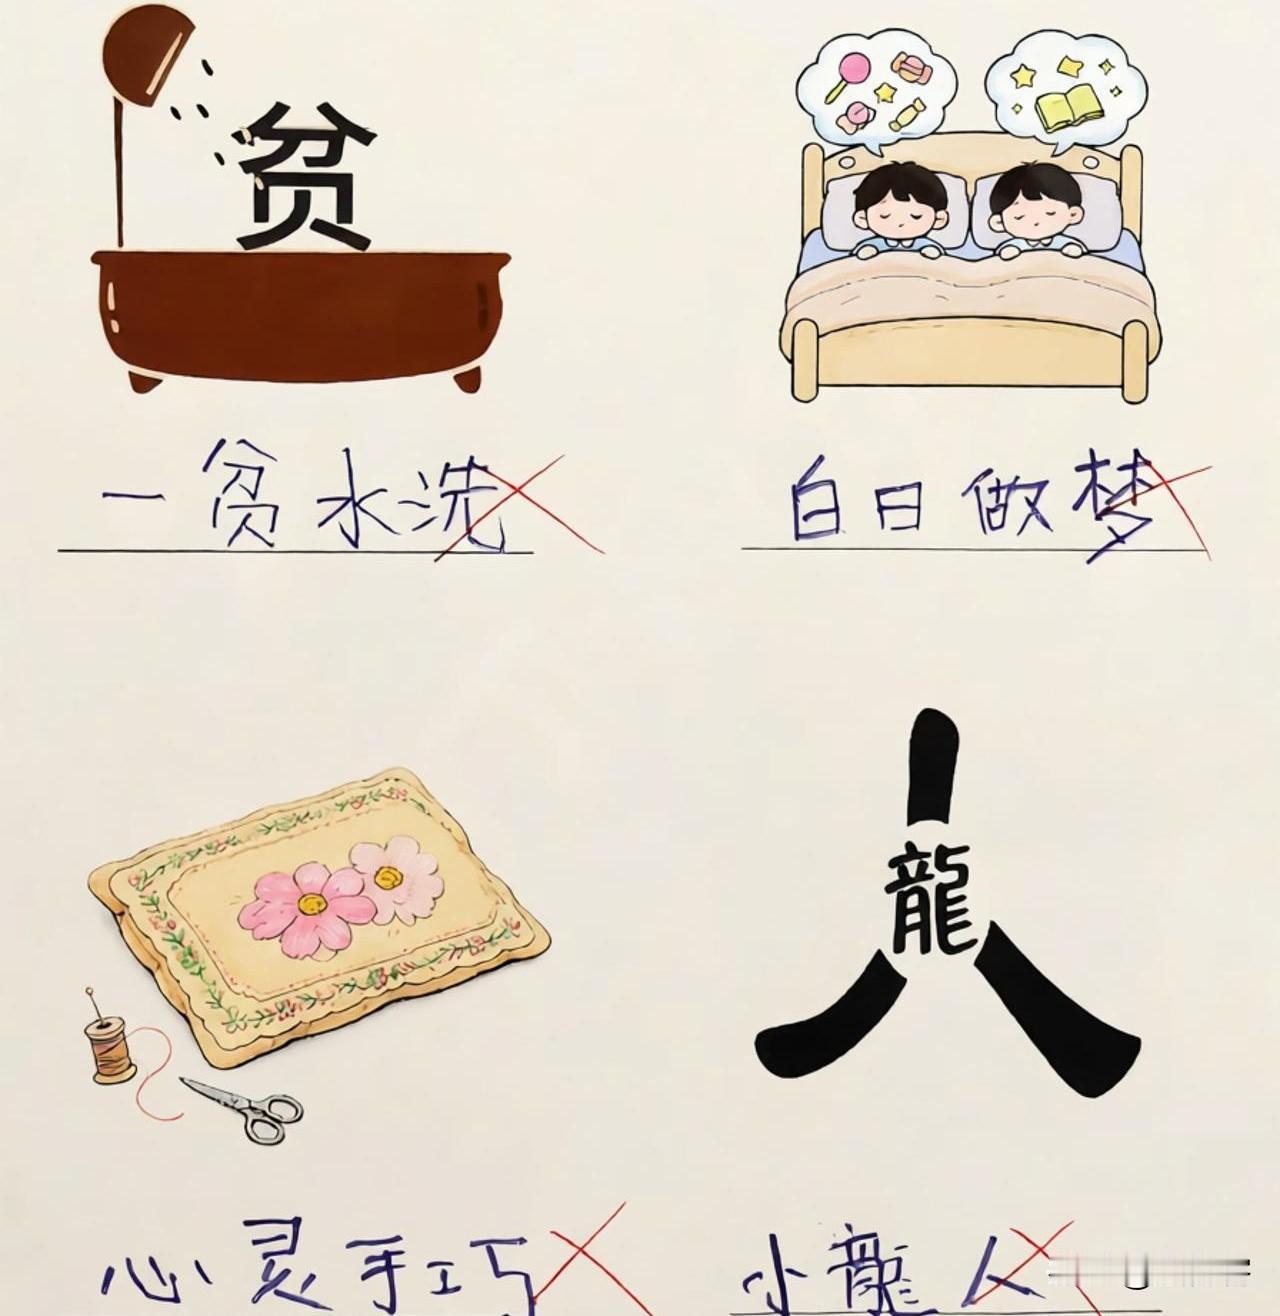 贫
一贫水洗
白日做梦
龍
人
心灵手巧
小龍人